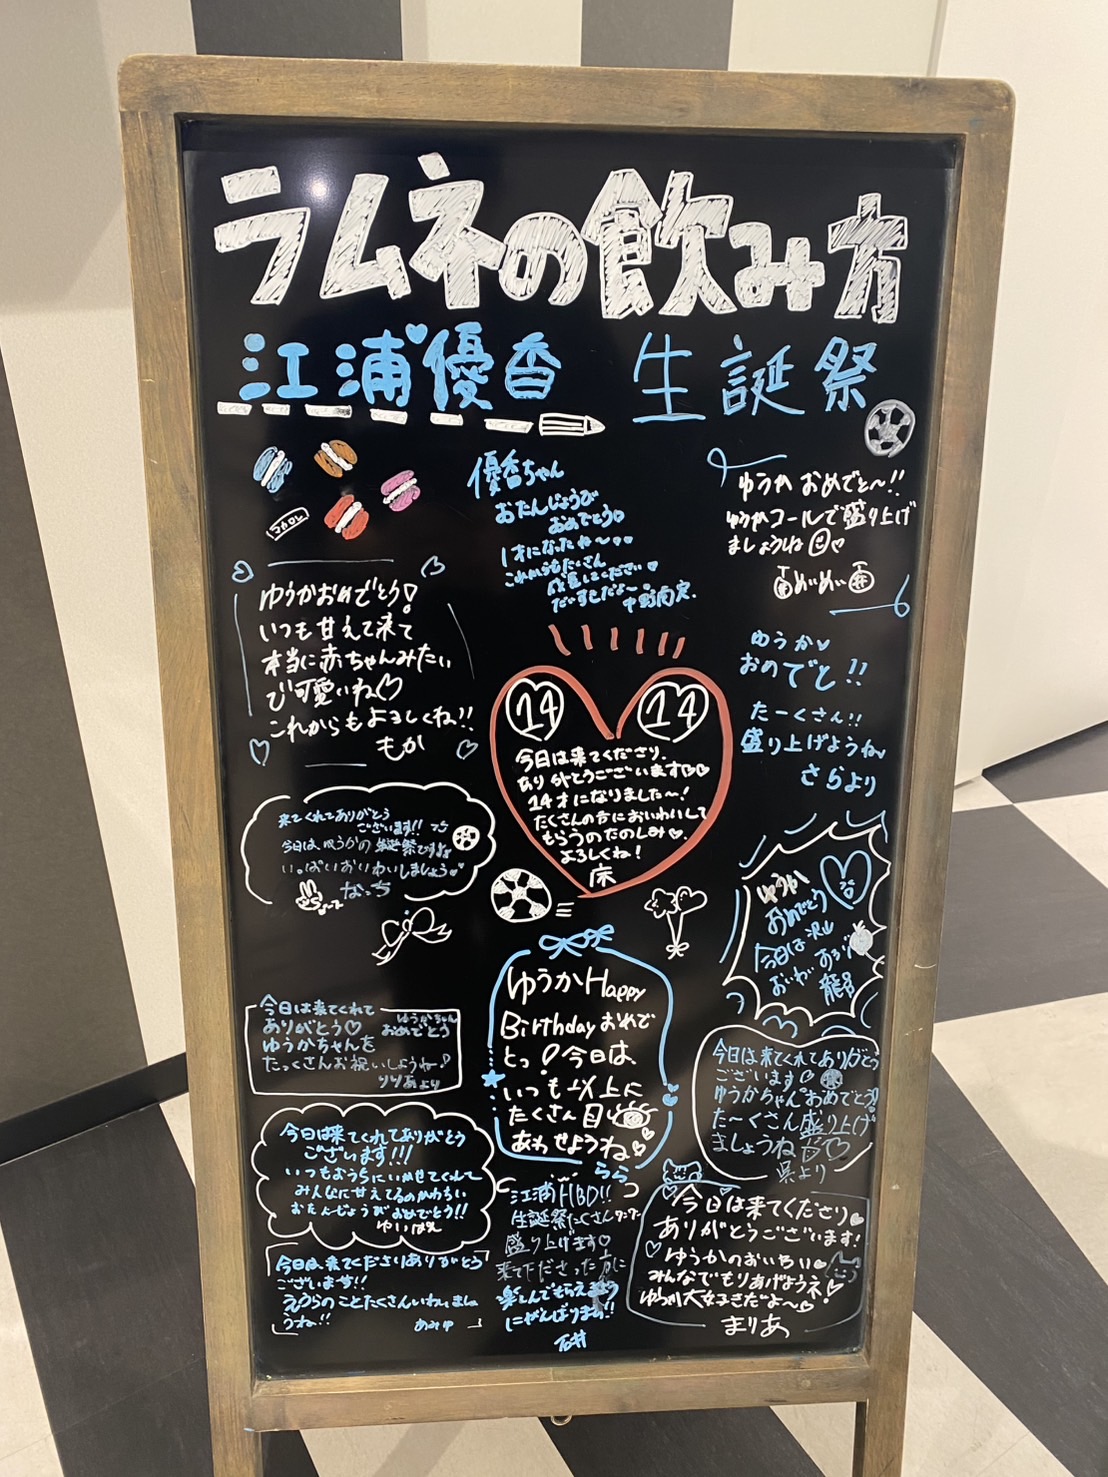 ラムネの飲み方
江浦優香 生誕祭
マカロン
優香ちゃん
おたんじょうび
おめでとう♡
1才になったね〜
これからもたくさん
成長してください
だいすきだよ〜
ゆうか おめでと〜!!
ゆうかコールで盛り上げ
ましょうね
めいめい
ゆうかおめでとう!
いつも甘えて来て
本当に赤ちゃんみたい
で可愛いね♡
これからもよろしくね!!
もか
14 14
今日は来てくださり、
ありがとうございます♡♡
14才になりました〜!
たくさんの方においわいして
もらうのたのしみ♡
よろしくね!
ゆうか
おめでと!!
たーくさん!!
盛り上げようね
さらより
来てくれてありがとう
ございます!!
今日は、ゆうかの生誕祭です
いっぱいおいわいしましょう
なっち
ゆうか
おめでとう
今日は沢山
おいわい
ゆうかHappy
Birthdayおめで
とっ!今日は、
いつも以上に
たくさん目
あわせようね♡
らら
今日は来てくれて
ありがとう♡
ゆうかちゃんを
たっくさんお祝いしようねー!
ゆうかちゃん
おめでとう
りりあより
今日は来てくれてありがとう
ございます♡
ゆうかちゃんおめでとう
た〜くさん盛り上げ
ましょうね
呉より
今日は来てくれてありがとう
ございます!!!
いつもおうちにいかせてくれて
みんなに甘えてるのかわいい
おたんじょうびおめでとう!!
江浦HBD!!
生誕祭たくさん
盛り上げます♡
来て下さった方に
楽しんでもらえるよう
にがんばります!!
石井
今日は来てくださり
ありがとうございます!
ゆうかのおいわい
みんなでもりあげようネ!
ゆうか大好きだよ〜
まりあ
今日は、来てくださりありがとう
ございます!!
えうらのことたくさんいわいましょ
うね!!